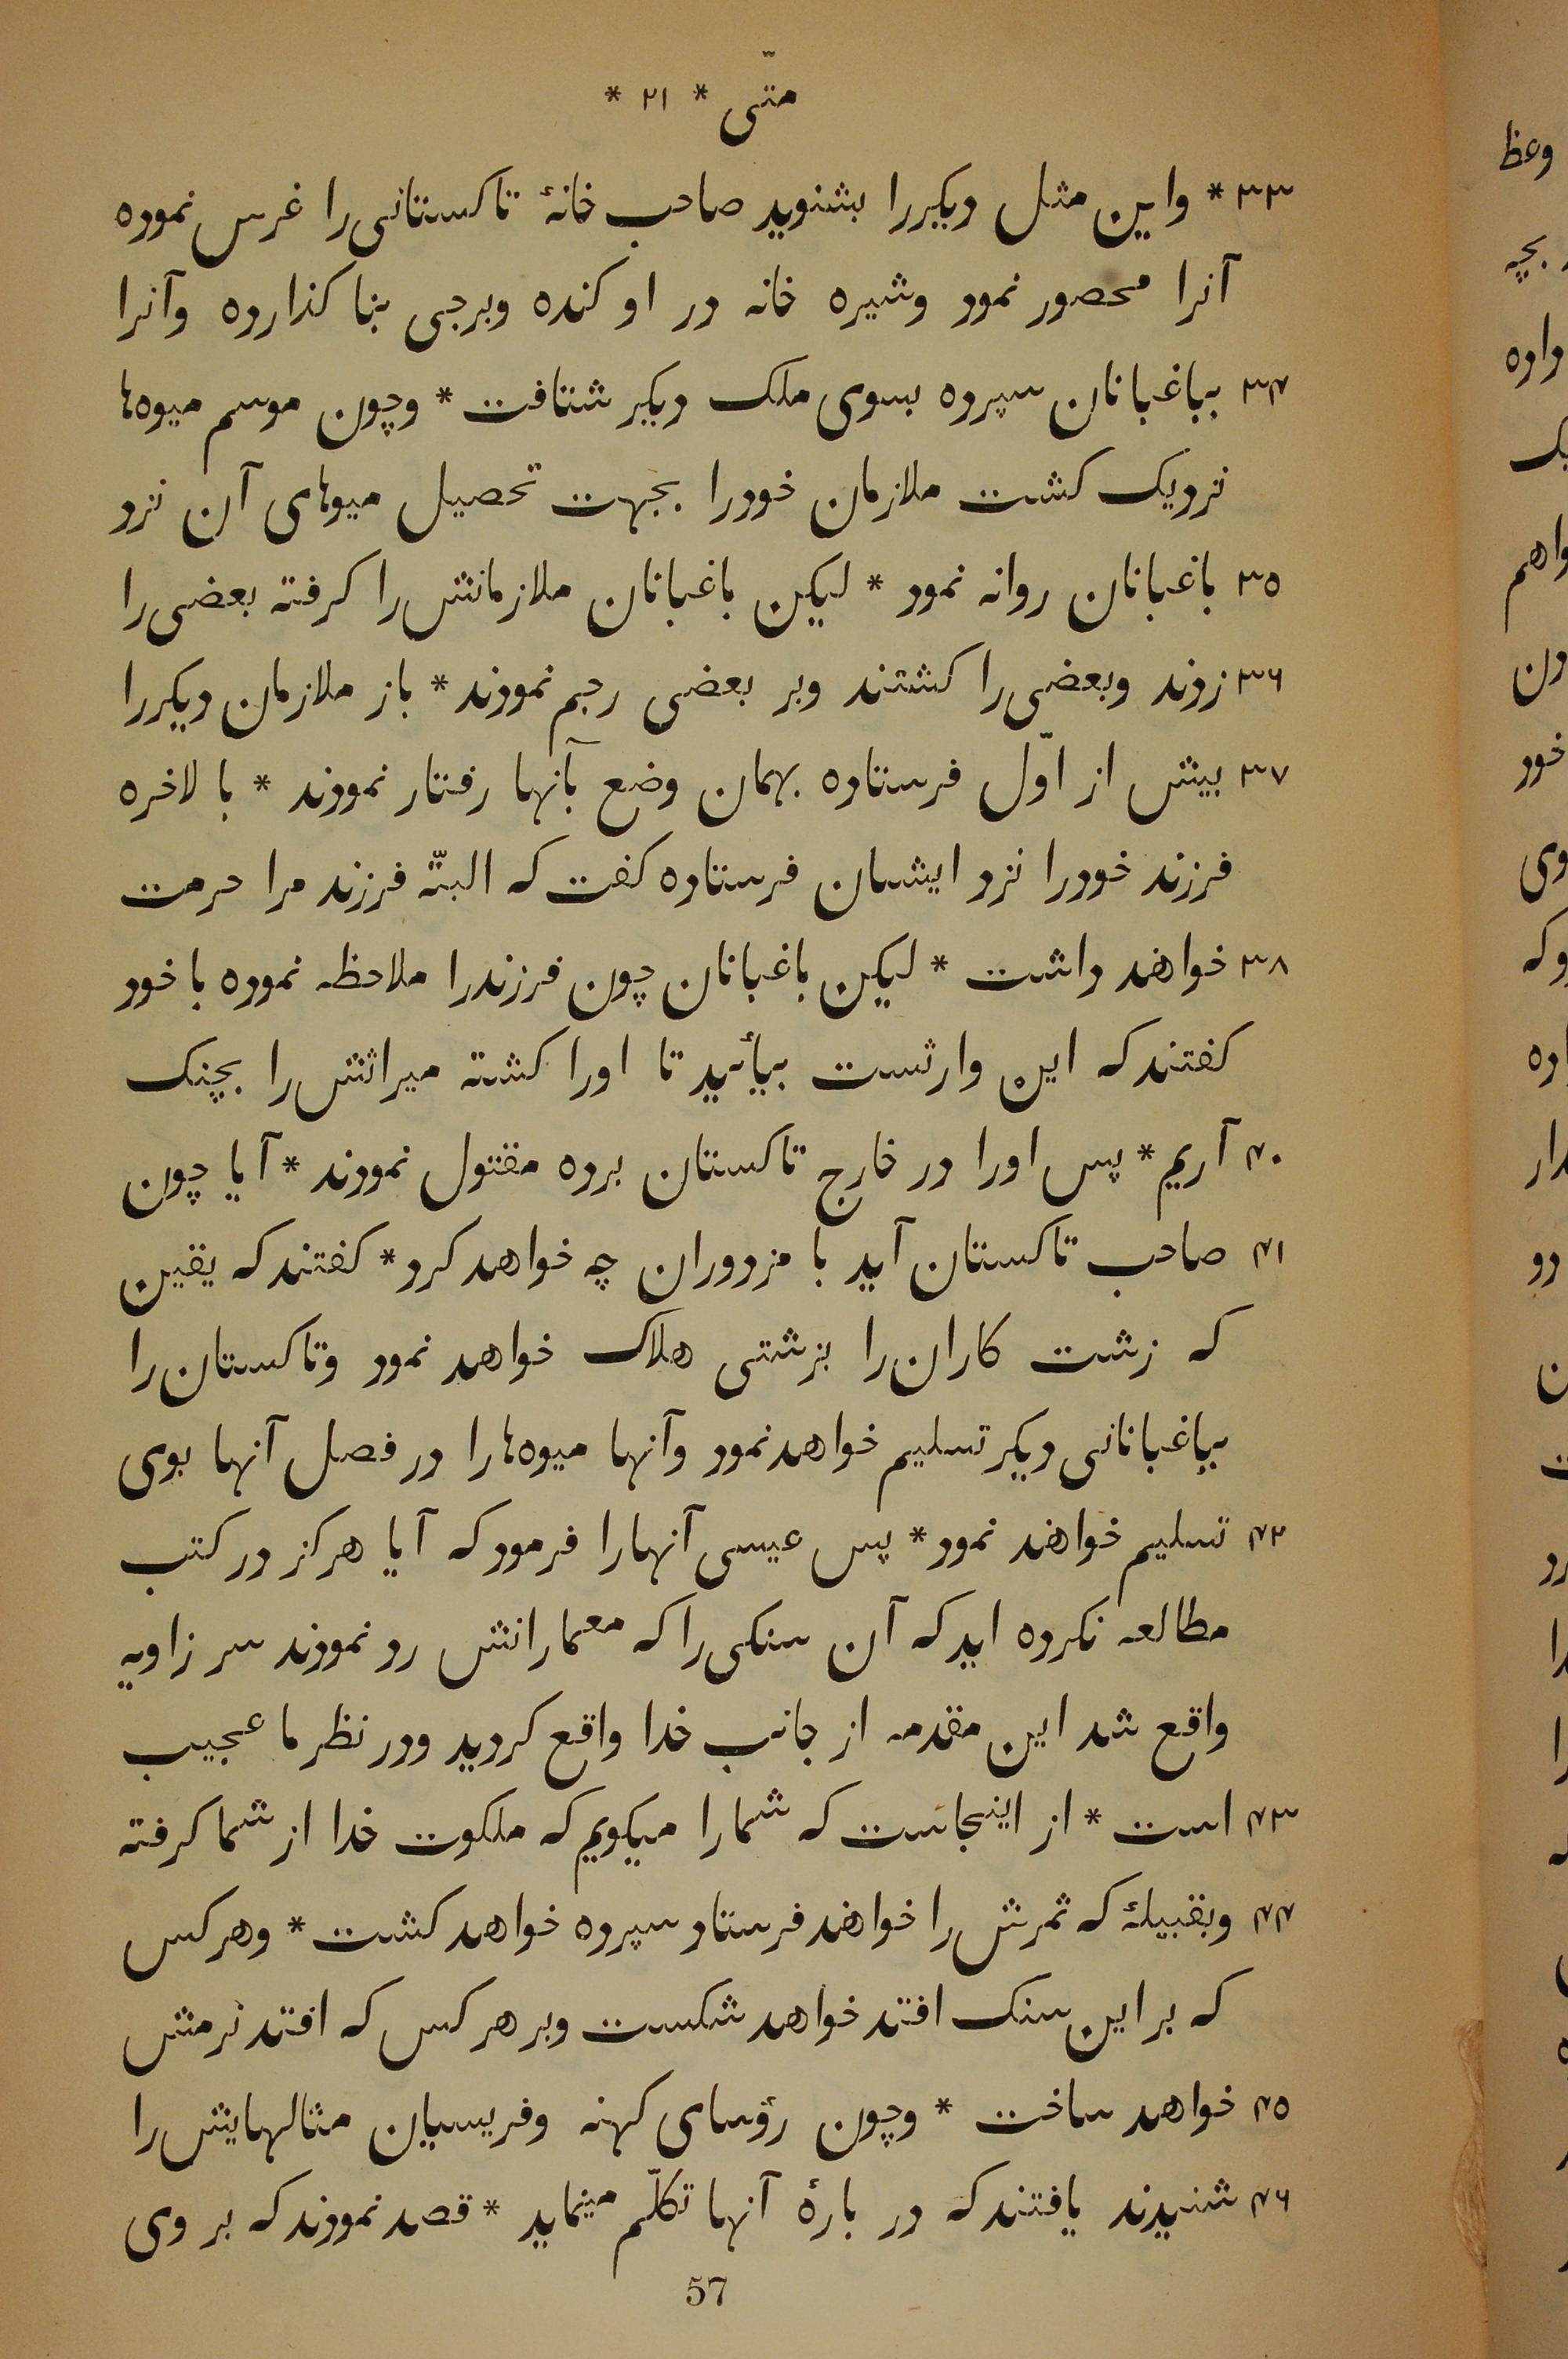 متّی * ۲۱ *
۳۳ * واین مثل دیکررا بشنوید صاحب خانهٔ تاکستانی را غرس نموده
آنرا محصور نمود وشیره خانه در او کنده وبرجی بنا کذارده وآنرا
۳۴ بباغبانان سپرده بسوی ملک دیکر شتافت * وچون موسم میوه‌ها
نزدیک کشت ملازمان خودرا بجهت تحصیل میوهای آن نزد
۳۵ باغبانان روانه نمود * لیکن باغبانان ملازمانش را کرفته بعضی را
۳۶ زدند وبعضی را کشتند وبر بعضی رجم نمودند * باز ملازمان دیکررا
۳۷ بیش از اوّل فرستاده بهمان وضع بآنها رفتار نمودند * با لاخره
فرزند خودرا نزد ایشان فرستاده کفت که البتّه فرزند مرا حرمت
۳۸ خواهند داشت * لیکن باغبانان چون فرزندرا ملاحظه نموده با خود
کفتند که این وارثست بیأئید تا اورا کشته میراثش را بچنک
۴۰ آریم * پس اورا در خارج تاکستان برده مقتول نمودند * آیا چون
۴۱ صاحب تاکستان آید با مزدوران چه خواهد کرد * کفتند که یقین
که زشت کاران را بزشتی هلاک خواهد نمود وتاکستان را
بباغبانانی دیکر تسلیم خواهد نمود وآنها میوه‌هارا در فصل آنها بوی
۴۲ تسلیم خواهند نمود * پس عیسی آنهارا فرمود که آیا هرکز در کتب
مطالعه نکرده اید که آن سنکی را که معمارانش رد نمودند سر زاویه
واقع شد این مقدمه از جانب خدا واقع کردید ودر نظر ما عجیب
۴۳ است * از اینجاست که شمارا میکویم که ملکوت خدا از شما کرفته
۴۴ وبقبیلهٔ که ثمرش را خواهند فرستاد سپرده خواهد کشت * وهر کس
که بر این سنک افتد خواهد شکست وبر هر کس که افتد نرمش
۴۵ خواهد ساخت * وچون رؤسای کهنه وفریسیان مثالهایش را
۴۶ شنیدند یافتند که در بارهٔ آنها تکلّم مینماید * قصد نمودند که بر وی
57
وعظ
بچه
داده
خود
وی
وکه
دو